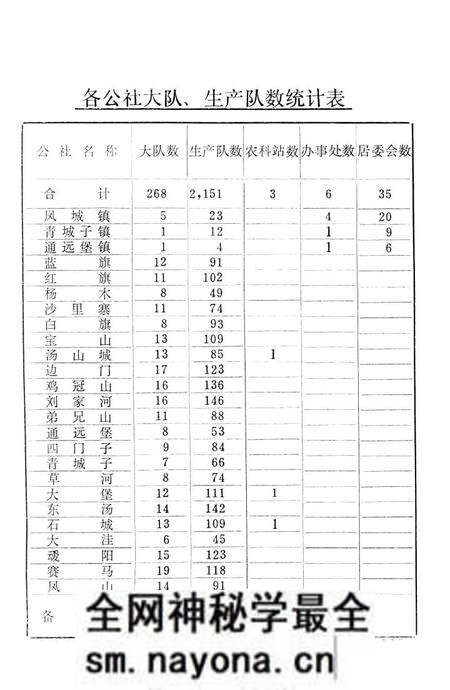 各公社大队、生产队数统计表
公社名称 大队数 生产队数 农科站数 办事处数 居委会数
合计 268 2,151 3 6 35
凤城镇 5 23 4 20
青城子镇 1 12 1 9
通远堡镇 1 4 1 6
蓝旗 12 91
红旗 11 102
杨木 8 49
沙里寨 11 74
白旗 8 93
宝山 13 109
汤山城 13 85 1
边门 17 123
鸡冠山 16 136
刘家河 16 146
弟兄山 11 88
通远堡 8 53
四门子 9 84
青城子 7 66
草河 8 74
大堡 12 111 1
东汤 14 142
石城 13 109 1
大洼 6 45
叆阳 15 123
赛马 19 118
凤山 14 91
备
全网神秘学最全
sm.nayona.cn